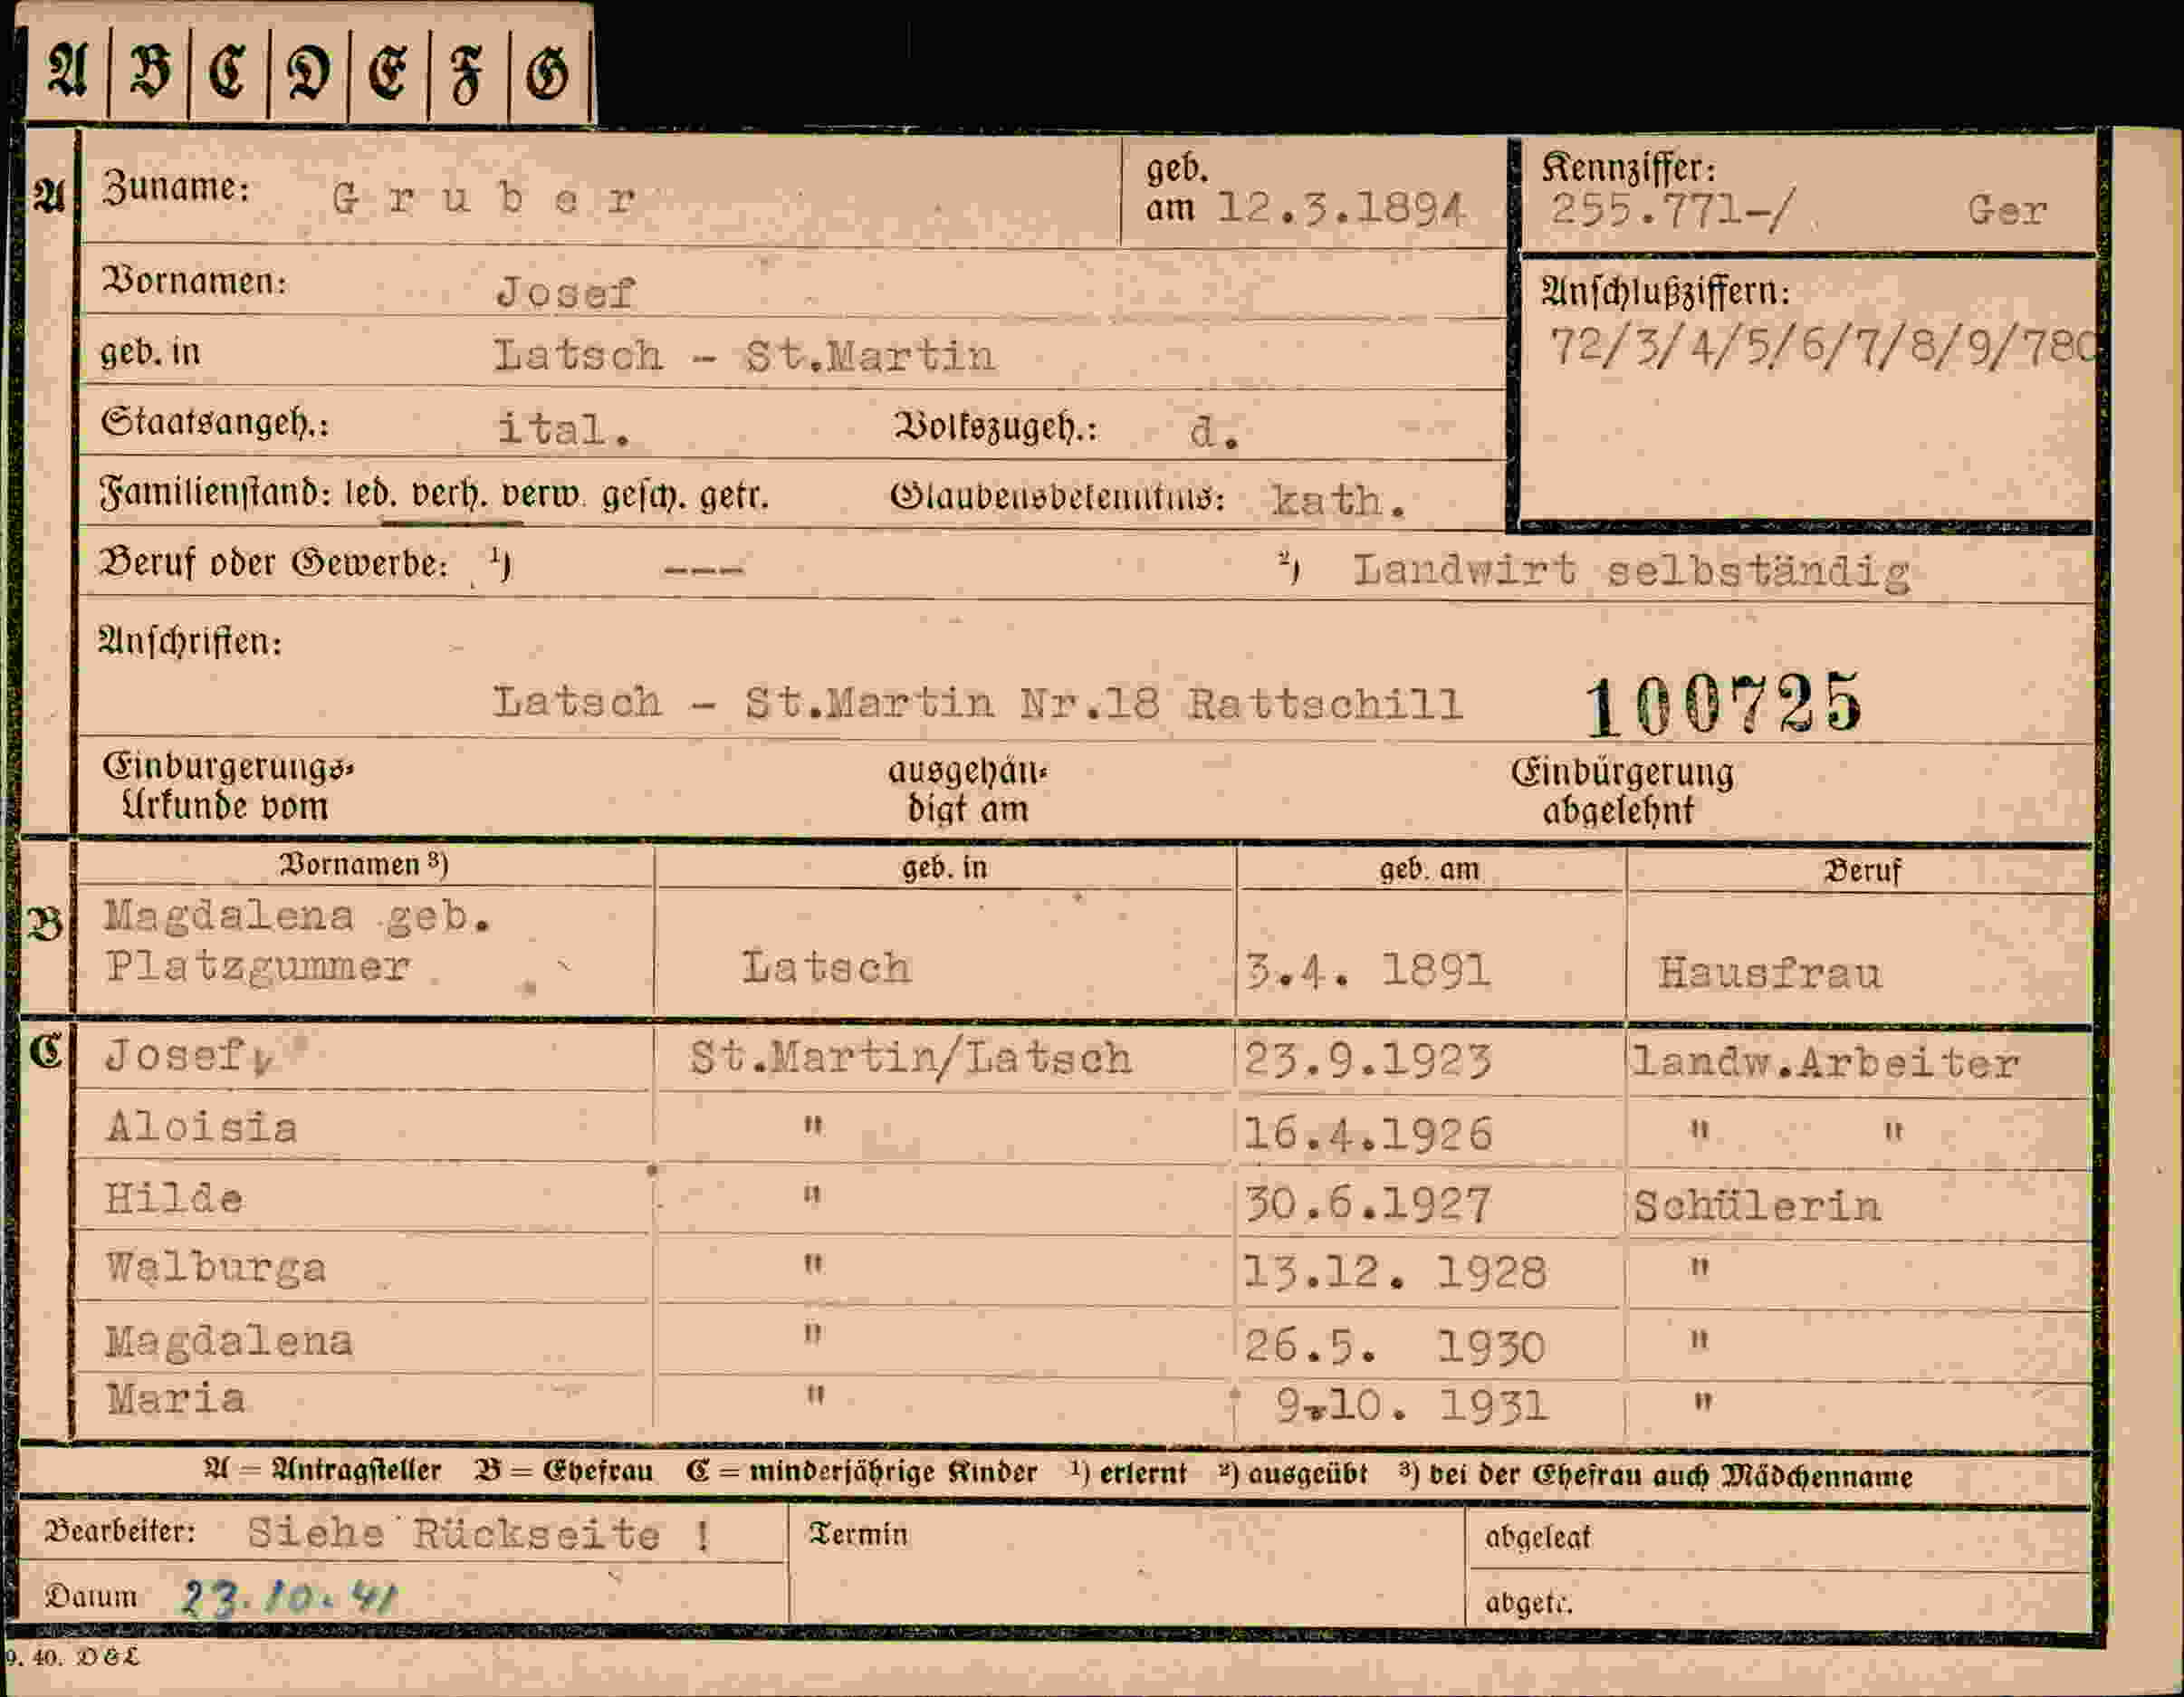 A B C D E F G
A Zuname: Gruber geb. am 12.3.1894 Kennziffer: 255.771-/ Ger
Vornamen: Josef Anschlußziffern:
geb. in Latsch - St.Martin 72/3/4/5/6/7/8/9/780
Staatsangeh.: ital. Volkszugeh.: d.
Familienstand: led. verh. verw. gesch. getr. Glaubensbekenntnis: kath.
Beruf oder Gewerbe: ¹) --- ²) Landwirt selbständig
Anschriften:
Latsch - St.Martin Nr.18 Rattschill 100725
Einbürgerungs- ausgehän- Einbürgerung
Urkunde vom digt am abgelehnt
Vornamen ³) geb. in geb. am Beruf
B Magdalena geb.
Platzgummer Latsch 3.4. 1891 Hausfrau
C Josef St.Martin/Latsch 23.9.1923 landw.Arbeiter
Aloisia " 16.4.1926 " "
Hilde " 30.6.1927 Schülerin
Walburga " 13.12. 1928 "
Magdalena " 26.5. 1930 "
Maria " 9.10. 1931 "
A = Antragsteller B = Ehefrau C = minderjährige Kinder ¹) erlernt ²) ausgeübt ³) bei der Ehefrau auch Mädchenname
Bearbeiter: Siehe Rückseite ! Termin abgelegt
Datum 23.10.41 abgetr.
9. 40. D&L